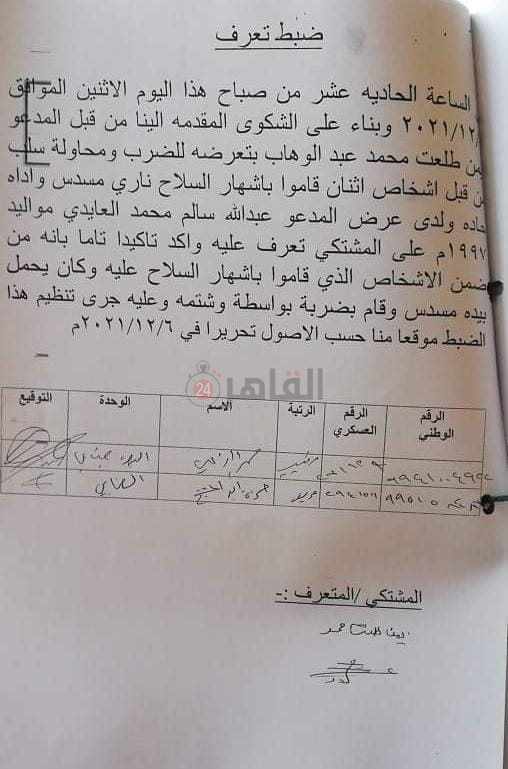 ضبط تعرف
الساعة الحاديه عشر من صباح هذا اليوم الاثنين الموافق
٢٠٢١/١٢/ وبناء على الشكوى المقدمه الينا من قبل المدعو
طلعت محمد عبد الوهاب بتعرضه للضرب ومحاولة سلب
من قبل اشخاص اثنان قاموا باشهار السلاح ناري مسدس واداه
حاده ولدى عرض المدعو عبدالله سالم محمد العايدي مواليد
١٩٩٧م على المشتكي تعرف عليه واكد تاكيدا تاما بانه من
ضمن الاشخاص الذي قاموا باشهار السلاح عليه وكان يحمل
بيده مسدس وقام بضربة بواسطة وشتمه وعليه جرى تنظيم هذا
الضبط موقعا منا حسب الاصول تحريرا في ٢٠٢١/١٢/٦م
القاهرة 24
الرقم الوطني
الرقم العسكري
الرتبة
الاسم
الوحدة
التوقيع
المشتكي /المتعرف :-